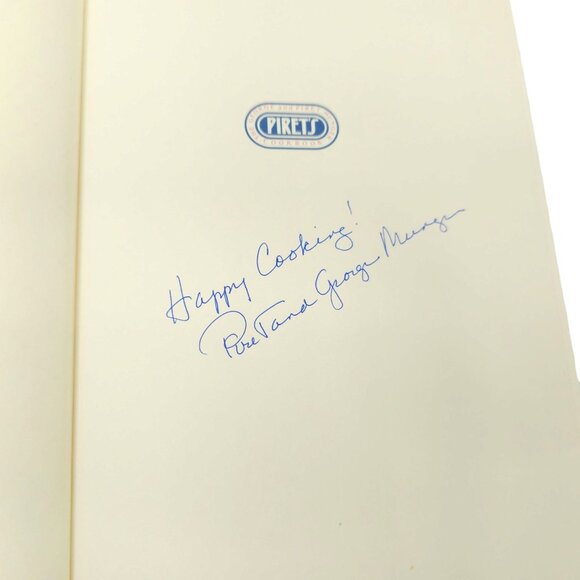 PIRET'S
COOKBOOK
Happy Cooking!
Piret and George Munger